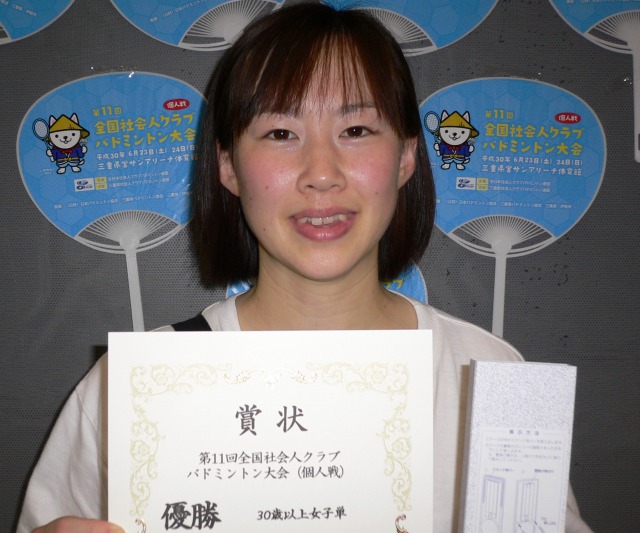 第11回
個人戦
全国社会人クラブ
バドミントン大会
平成30年 6月23日(土) 24日(日)
三重県営サンアリーナ体育館
第11回
個人戦
全国社会人クラブ
バドミントン大会
平成30年 6月23日(土) 24日(日)
三重県営サンアリーナ体育館
賞状
第11回全国社会人クラブ
バドミントン大会（個人戦）
優勝 30歳以上女子単
展示方法